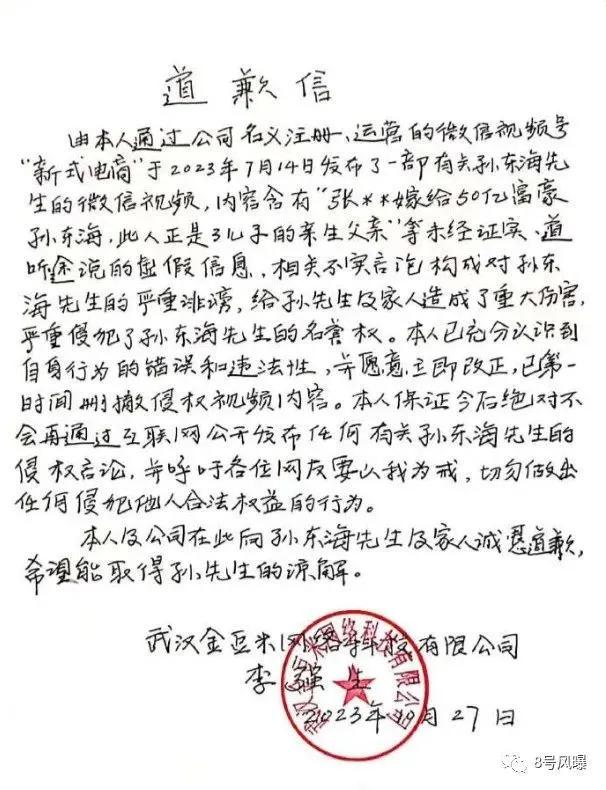 道歉信
由本人通过公司名义注册、运营的微信视频号
"新式电商"于2023年7月14日发布了一部有关孙东海先
生的微信视频,内容含有"张**嫁给50亿富豪
孙东海,此人正是3儿子的亲生父亲"等未经证实、道
听途说的虚假信息,相关不实言论构成对孙东
海先生的严重诽谤,给孙先生及家人造成了重大伤害,
严重侵犯了孙东海先生的名誉权。本人已充分认识到
自身行为的错误和违法性,并愿意立即改正,已第一
时间删撤侵权视频内容。本人保证今后绝对不
会再通过互联网公开发布任何有关孙东海先生的
侵权言论,并呼吁各位网友要以我为戒,切勿做出
任何侵犯他人合法权益的行为。
本人及公司在此向孙东海先生及家人诚恳道歉,
希望能取得孙先生的谅解。
武汉金豆米网络科技有限公司
李强生
2023年10月27日
8号风曝